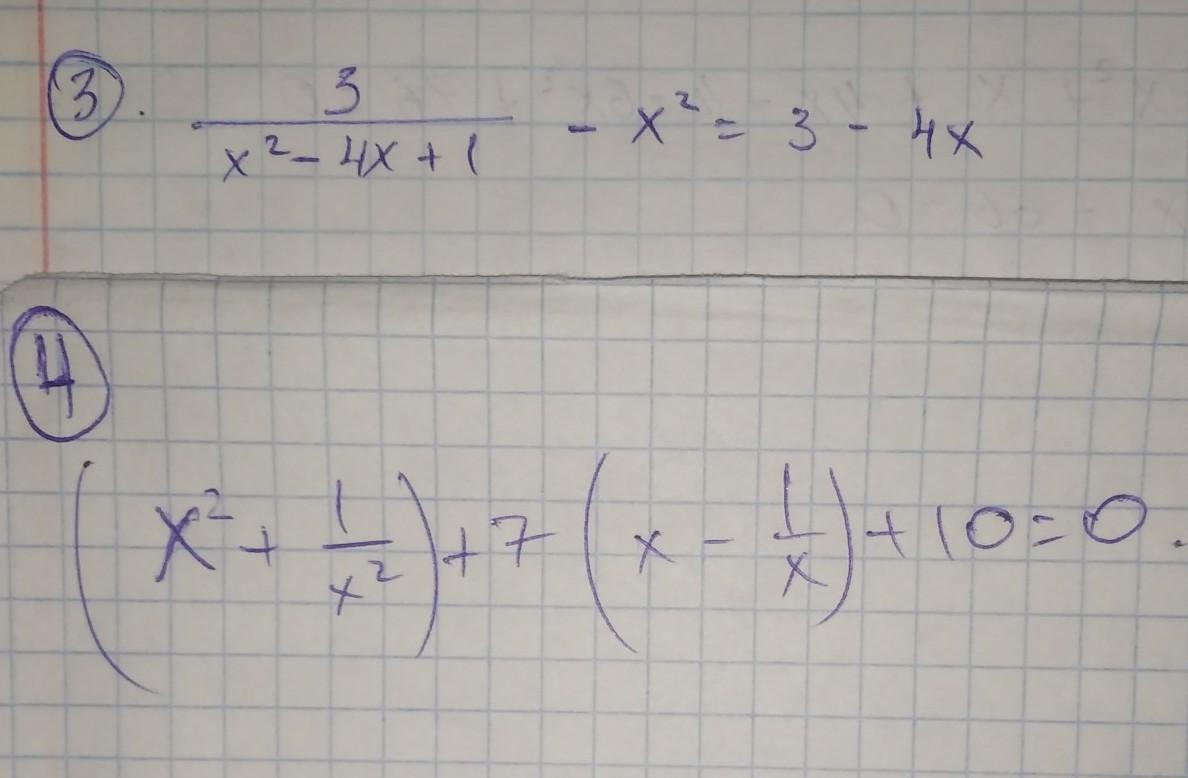 ③. 3/(x² - 4x + 1) - x² = 3 - 4x
④
(x² + 1/x²) + 7(x - 1/x) + 10 = 0.